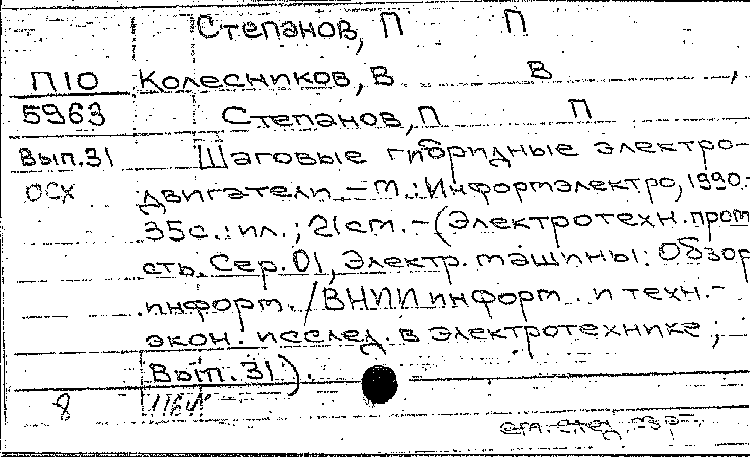 Степанов, П П
П10 Колесников, В В ,
5963 Степанов, П П
Вып.31 Шаговые гибридные электро-
ОСХ двигатели. – М.: Информэлектро, 1990.-
35с.: ил.; 21см. – (Электротехн. пром
сть. Сер. 01, Электр. машины: Обзор
информ. / ВНИИ информ. и техн.-
экон. исслед. в электротехнике;
Вып. 31).
8
см. след.